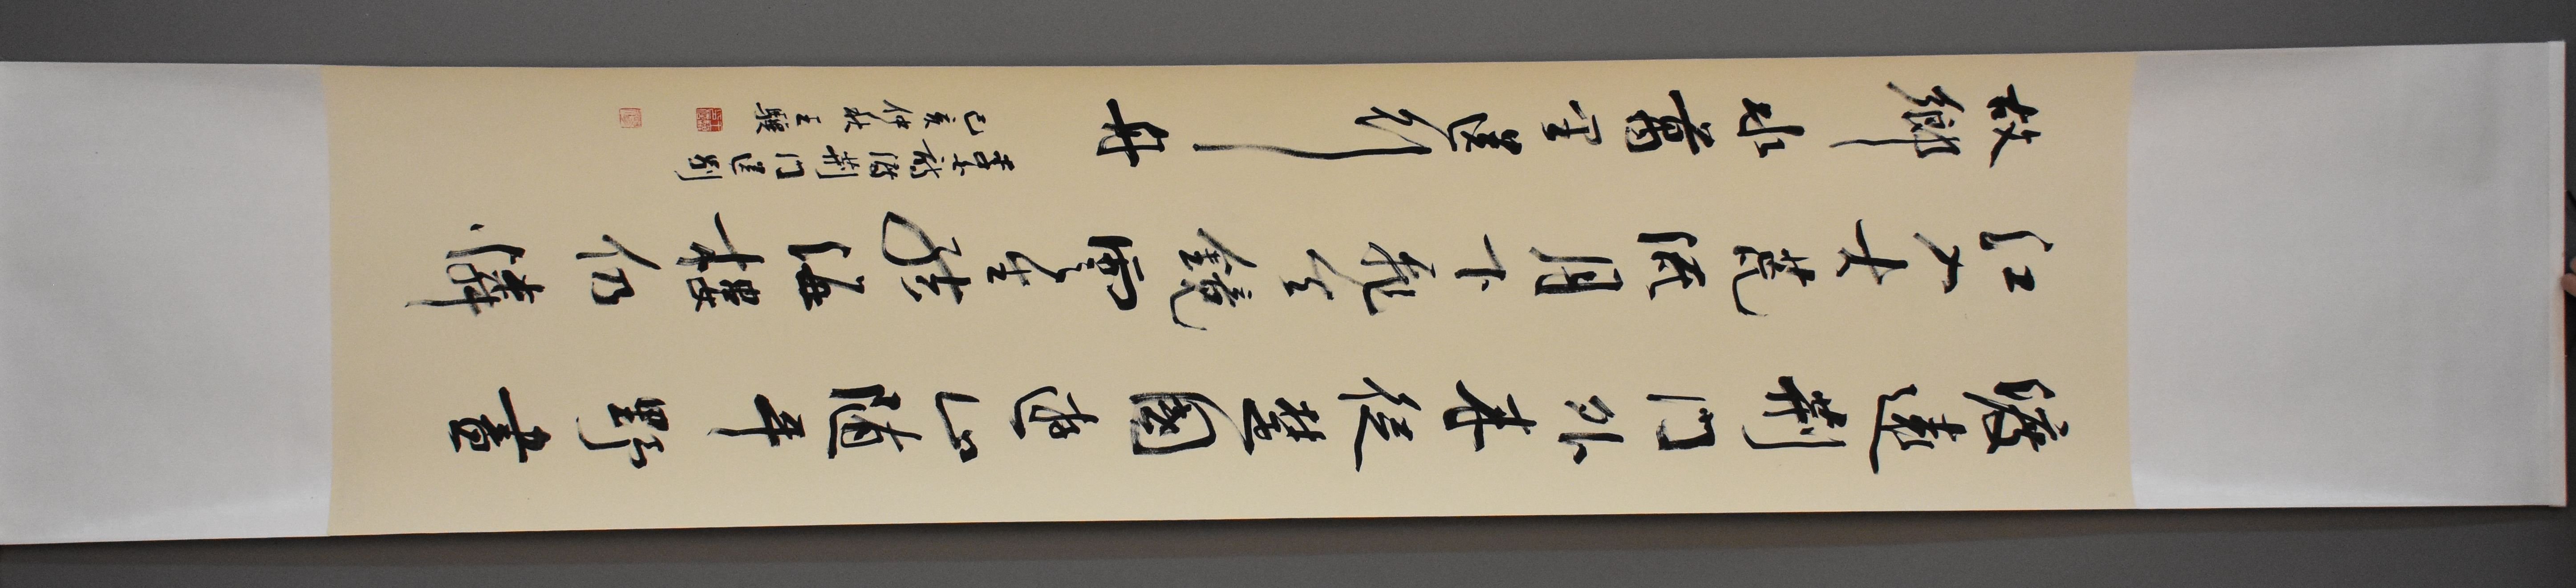 渡遠荆門外來從楚國遊山隨平野盡
江入大荒流月下飛天鏡雲生結海樓仍憐
故鄉水萬里送行舟
李白詩渡荆門送別
己亥仲秋王